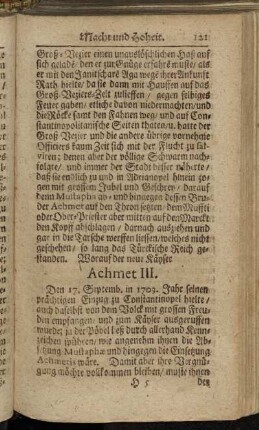 Macht und Hoheit. 121
Groß-Vezier einen unauslöschlichen Haß auf
sich geladē, den er zur Gnüge erfahrē muste, als
er mit den Janitscharē Aga wegē ihrer Ankunft
Rath hielte, da sie dann mit Hauffen auf das
Groß-Veziers-Zelt zulieffen, gegen selbiges
Feuer gaben, etliche davon niedermachten, und
die Röcke samt den Fahnen weg, und auf Con-
stantinopolitanische Seiten thaten, u. hatte der
Groß Vezier und die andere übrige vornehme
Officiers kaum Zeit sich mit der Flucht zu sal-
viren; denen aber der völlige Schwarm nach-
folgte, und immer der Stadt besser näherte,
daß sie endlich zu und in Adrianopel hinein zo-
gen mit grossem Jubel und Geschrey, darauf
denn Mustapha ab- und hingegen dessen Bru-
der Achmet auf den Thron setzten, dem Muffti
oder Ober-Priester aber mitten auf dem Marckt
den Kopff abschlagen, darnach ausziehen und
gar in die Tartsche werffen liessen, welches nicht
geschehen, so lang das Türckische Reich ge-
standen. Worauf der neue Käyser
Achmet III.
Den 17. Septemb. in 1703. Jahr seinen
prächtigen Einzug zu Constantinopel hielte,
auch daselbst von dem Volck mit grossen Freu-
den empfangen, und zum Käyser ausgeruffen
wurde; ja der Pöbel ließ durch allerhand Kenn-
zeichen spühren, wie angenehm ihnen die Ab-
setzung Mustapha und hingegen die Einsetzung
Achmets wäre. Damit aber ihre Vergnü-
gung möchte vollkommen bleiben, muste ihnen
H 5 der